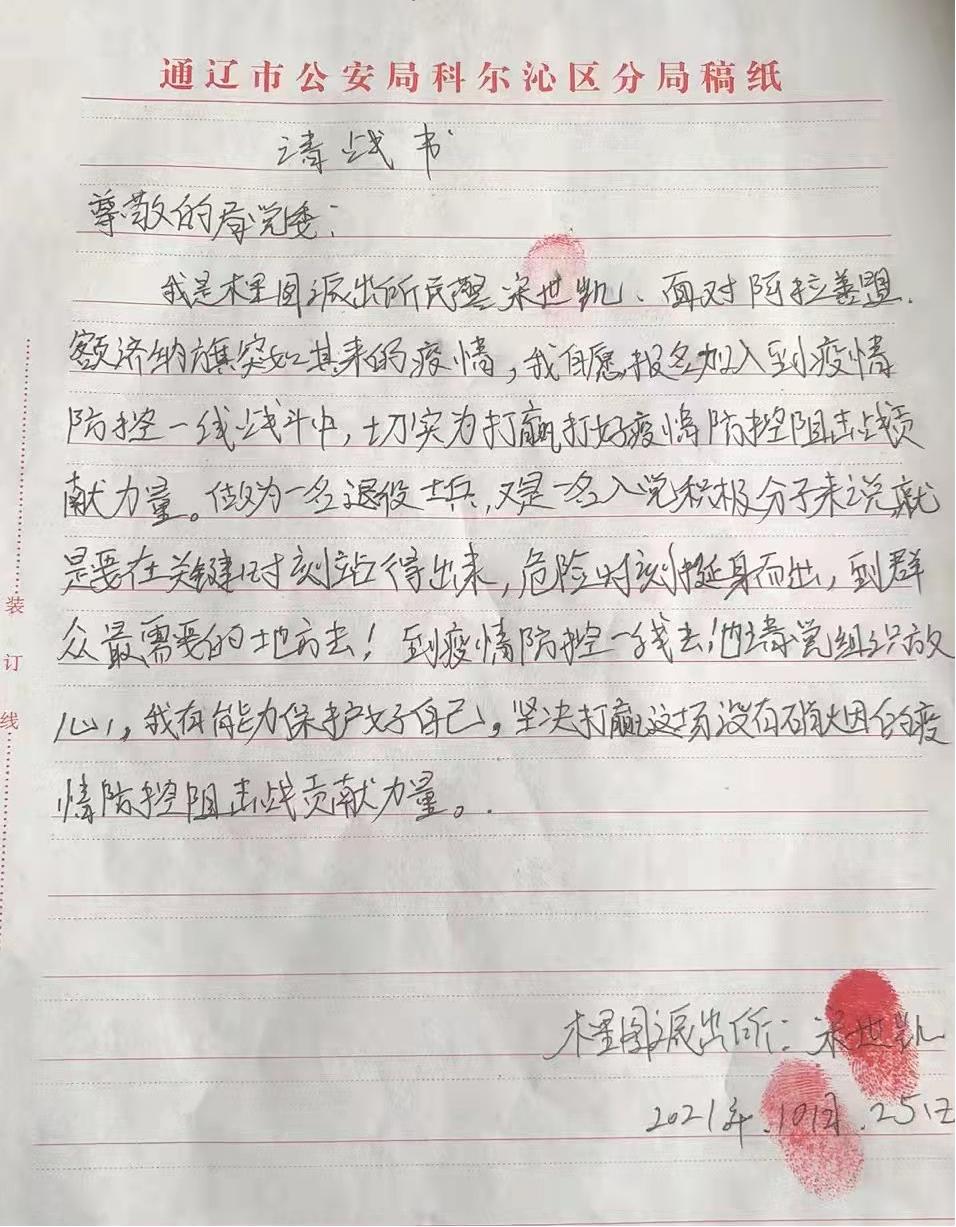 通辽市公安局科尔沁区分局稿纸
请战书
尊敬的局党委：
我是木里图派出所民警宋世凯、面对阿拉善盟.
额济纳旗突如其来的疫情，我自愿报名加入到疫情
防控一线战斗中，切实为打赢打好疫情防控阻击战贡
献力量。做为一名退役士兵，又是一名入党积极分子来说，就
是要在关键时刻站得出来，危险时刻挺身而出，到群
众最需要的地方去！到疫情防控一线去！也请党组织放
心，我有能力保护好自己。坚决打赢这场没有硝烟的疫
情防控阻击战贡献力量。.
木里图派出所：宋世凯
2021年.10月.25日
装
订
线